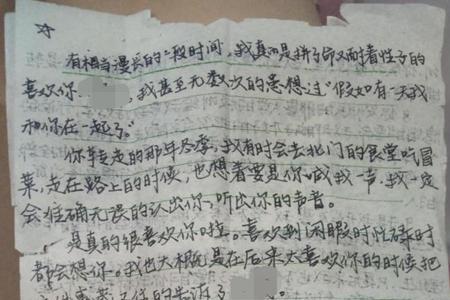 ☆
有相当漫长的一段时间，我真的是拼了命又耐着性子的
喜欢你，我甚至无数次的思想过“假如有一天我
和你在一起了。”
你转走的那年冬季，我有时会去北门的食堂吃冒
菜，走在路上的时候，也想着要是你喊我一节，我一定
会准确无误的认出你，听出你的声音。
是真的很喜欢你啦。喜欢到闲暇时忙碌时
都会想你。我也大概是在后来太喜欢你的时候把